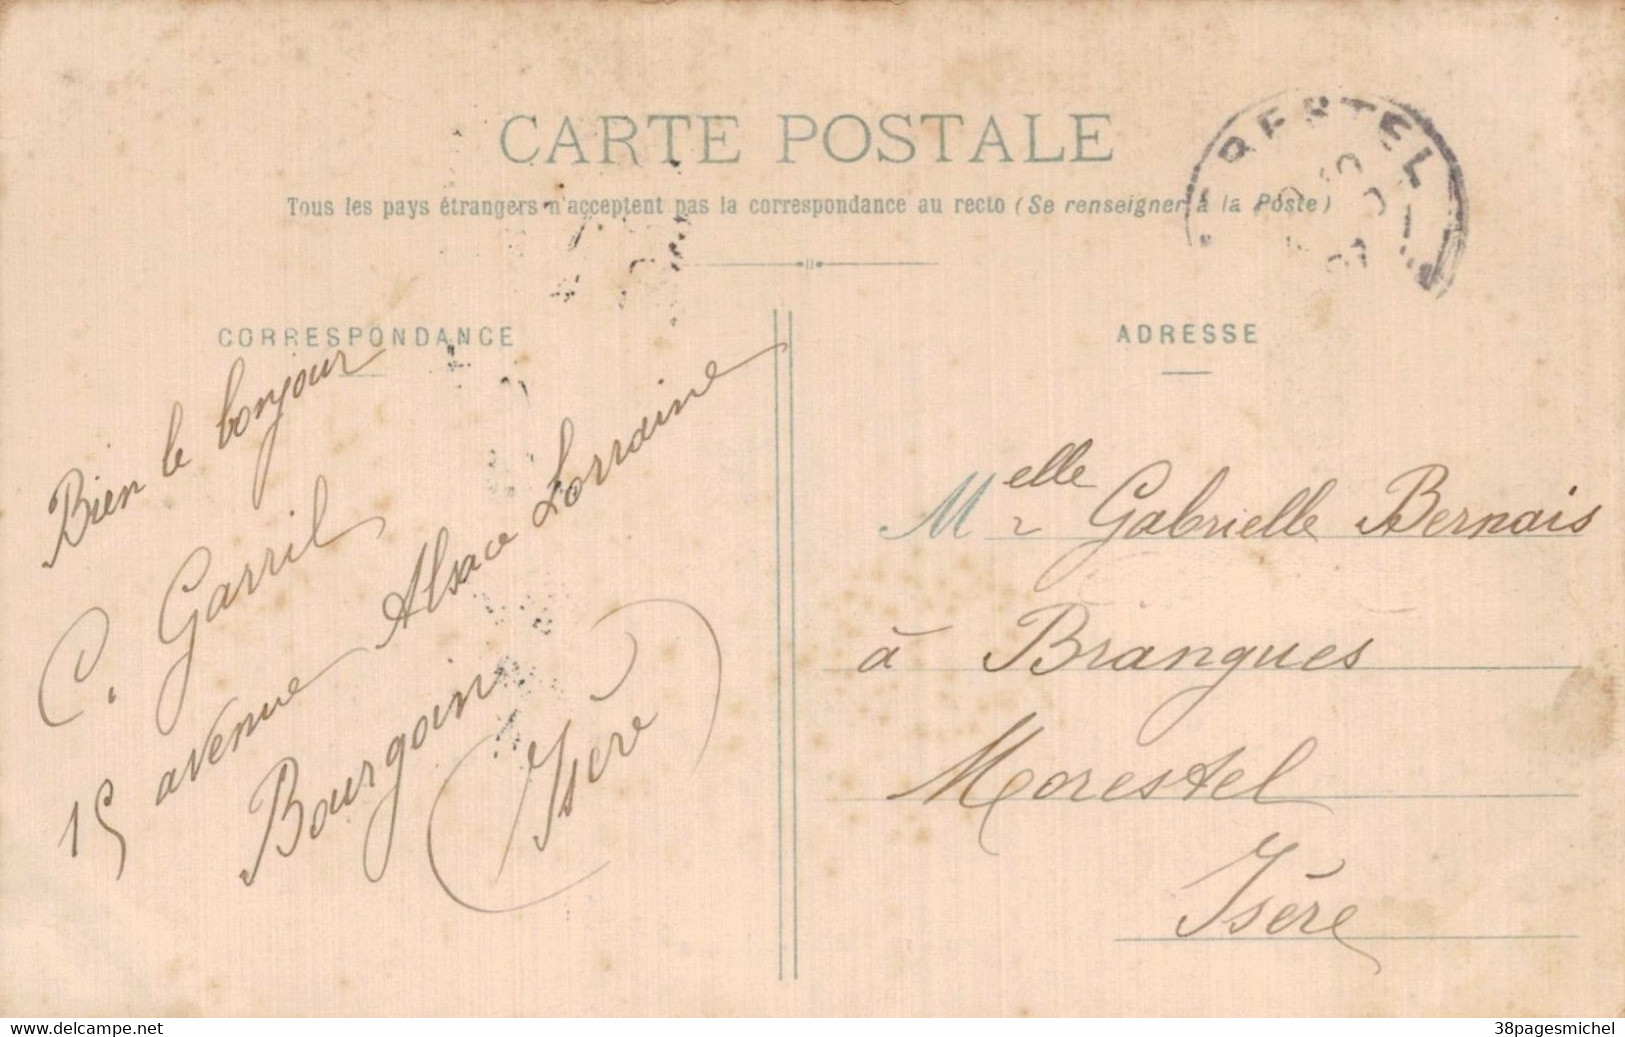 CARTE POSTALE
Tous les pays étrangers n'acceptent pas la correspondance au recto (Se renseigner à la Poste)
CORRESPONDANCE
Bien le bonjour
C. Garril
15 avenue Alsace Lorraine
Bourgoin
(Isère)
ADRESSE
Melle Gabrielle Bernais
à Brangues
Morestel
Isère
www.delcampe.net
38pagesmichel